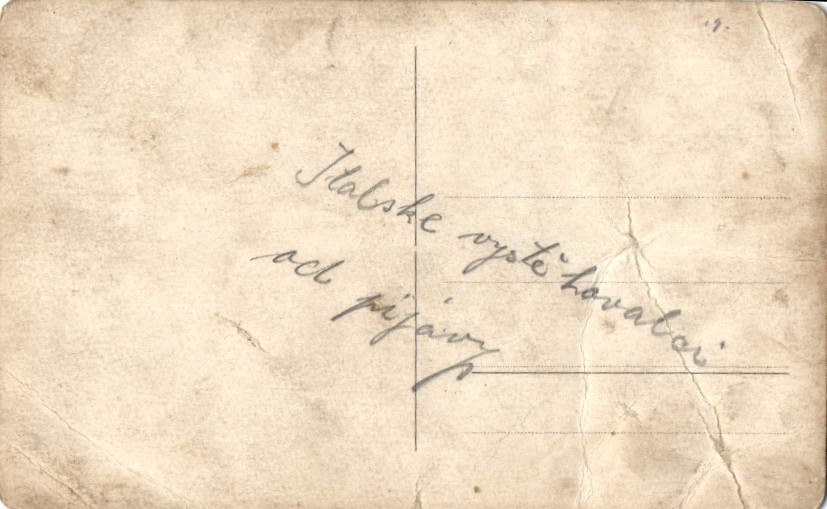 .9.
Italske vystěhovalci
od pijávy